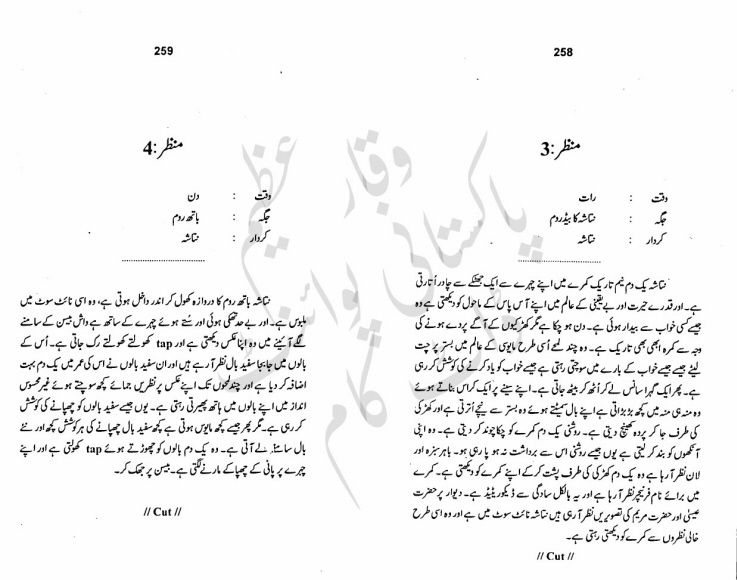 258
منظر:3
وقت : رات
جگہ : نتاشہ کا بیڈ روم
کردار : نتاشہ
نتاشہ یک دم نیم تاریک کمرے میں اپنے چہرے سے ایک جھٹکے سے چادر اُتارتی
ہے۔ اور قدرے حیرت اور بے یقینی کے عالم میں اپنے آس پاس کے ماحول کو دیکھتی ہے وہ
جیسے کسی خواب سے بیدار ہوئی ہے۔ دن ہو چکا ہے مگر کھڑکیوں کے آگے پردے ہونے کی
وجہ سے کمرہ ابھی بھی تاریک ہے۔ وہ چند لمحے اُسی طرح مایوسی کے عالم میں بستر پر چت
لیٹے جیسے جیسے خواب کے بارے میں سوچتی رہتی ہے جیسے خواب کو یاد کرنے کی کوشش کر رہی
ہے۔ پھر ایک گہرا سانس لے کر اُٹھ کر بیٹھ جاتی ہے۔ اپنے سینے پر ایک کراس بناتے ہوئے
وہ منہ ہی منہ میں کچھ بڑبڑاتی ہے اپنے بال سمیٹتے ہوئے وہ بستر سے نیچے اُترتی ہے اور کھڑکی
کی طرف جا کر پردہ کھینچ دیتی ہے۔ روشنی یک دم کمرے کو چکا چوند کر دیتی ہے۔ وہ اپنی
آنکھوں کو بند کر لیتی ہے یوں جیسے روشنی اس سے برداشت نہ ہو پا رہی ہو۔ باہر سبزہ اور
لان نظر آ رہا ہے وہ یک دم کھڑکی کی طرف پشت کر کے اپنے کمرے کو دیکھتی ہے۔ کمرے
میں برائے نام فرنیچر نظر آ رہا ہے اور یہ بالکل سادگی سے ڈیکوریٹیڈ ہے۔ دیوار پر حضرت
عیسیٰ اور حضرت مریم کی تصویریں نظر آ رہی ہیں نتاشہ نائٹ سوٹ میں ہے اور وہ اسی طرح
خالی نظروں سے کمرے کو دیکھتی رہتی ہے۔
// Cut //
259
منظر:4
وقت : دن
جگہ : باتھ روم
کردار : نتاشہ
نتاشہ باتھ روم کا دروازہ کھول کر اندر داخل ہوتی ہے، وہ اسی نائٹ سوٹ میں
ملبوس ہے۔ اور بے حد تھکی ہوئی اور ستے ہوئے چہرے کے ساتھ ہے واش بیسن کے سامنے
لگے آئینے میں وہ اپنا عکس دیکھتی ہے اور tap کھولتے کھولتے رک جاتی ہے۔ اُس کے
بالوں میں جا بجا سفید بال نظر آ رہے ہیں اور ان سفید بالوں نے اس کی عمر میں یک دم بہت
اضافہ کر دیا ہے اور چند لمحوں تک اپنے عکس پر نظریں جمائے کچھ سوچتے ہوئے غیر محسوس
انداز میں اپنے بالوں میں ہاتھ پھیرتی رہتی ہے۔ یوں جیسے سفید بالوں کو چھپانے کی کوشش
کر رہی ہے۔ مگر پھر جیسے کچھ مایوس ہوتی ہے کچھ سفید بال چھپانے کی ہر کوشش کچھ اور نئے
بال سامنے لے آتی ہے۔ وہ یک دم بالوں کو چھوڑتے ہوئے tap کھولتی ہے اور اپنے
چہرے پر پانی کے چھپاکے مارنے لگتی ہے۔ بیسن پر جھک کر۔
// Cut //
وقار عظیم
پاکستانی پوائنٹ
ڈاٹ کام